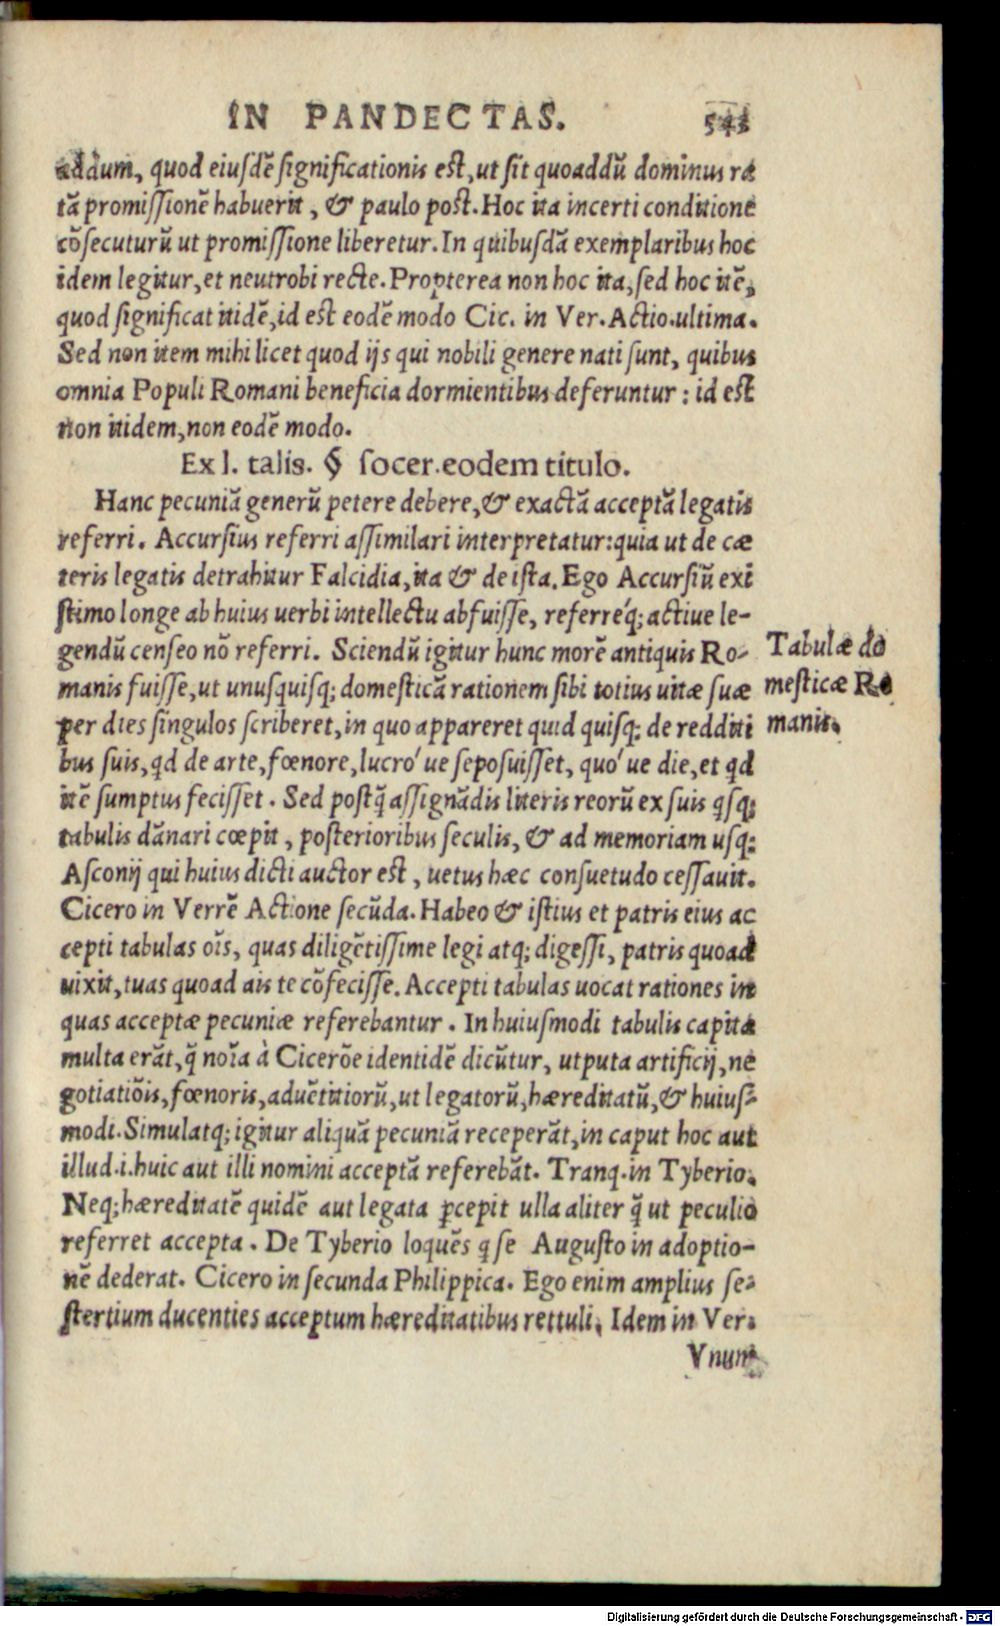 IN PANDECTAS. 543
addum, quod eiusdē significationis est, ut sit quoaddū dominus ra
tā promissionē habuerit, & paulo post. Hoc ita incerti conditione
cōsecuturū ut promissione liberetur. In quibusdā exemplaribus hoc
idem legitur, et neutrobi recte. Propterea non hoc ita, sed hoc itē,
quod significat itidē, id est eodē modo Cic. in Ver. Actio. ultima.
Sed non item mihi licet quod ijs qui nobili genere nati sunt, quibus
omnia Populi Romani beneficia dormientibus deferuntur: id est
non itidem, non eodē modo.
Ex l. talis. § socer. eodem titulo.
Hanc pecuniā generū petere debere, & exactā acceptā legatis
referri. Accursius referri assimilari interpretatur: quia ut de cæ
teris legatis detrahitur Falcidia, ita & de ista. Ego Accursiū exi
stimo longe ab huius uerbi intellectu abfuisse, referreq́; actiue le-
gendū censeo nō referri. Sciendū igitur hunc morē antiquis Ro-
manis fuisse, ut unusquisq; domesticā rationem sibi totius uitæ suæ
per dies singulos scriberet, in quo appareret quid quisq; de redditi
bus suis, qd de arte, fœnore, lucró ue seposuisset, quó ue die, et qd
itē sumptus fecisset. Sed postq̄ assignādis literis reorū ex suis qsq;
tabulis dānari cœpit, posterioribus seculis, & ad memoriam usq;
Asconij qui huius dicti auctor est, uetus hæc consuetudo cessauit.
Cicero in Verrē Actione secūda. Habeo & istius et patris eius ac
cepti tabulas oīs, quas diligētissime legi atq; digessi, patris quoad
uixit, tuas quoad ais te cōfecisse. Accepti tabulas uocat rationes in
quas acceptæ pecuniæ referebantur. In huiusmodi tabulis capita
multa erāt, q̄ noīa à Cicerōe identidē dicūtur, utputa artificij, ne
gotiatiōis, fœnoris, aduētitiorū, ut legatorū, hæreditatū, & huius-
modi. Simulatq; igitur aliquā pecuniā receperāt, in caput hoc aut
illud .i. huic aut illi nomini acceptā referebāt. Tranq. in Tyberio.
Neq; hæreditatē quidē aut legata ꝑcepit ulla aliter q̄ ut peculio
referret accepta. De Tyberio loquēs q se Augusto in adoptio-
nē dederat. Cicero in secunda Philippica. Ego enim amplius se-
stertium ducenties acceptum hæreditatibus rettuli. Idem in Ver.
Vnum
Tabulæ do
mesticæ Ro
manis.
Digitalisierung gefördert durch die Deutsche Forschungsgemeinschaft - DFG